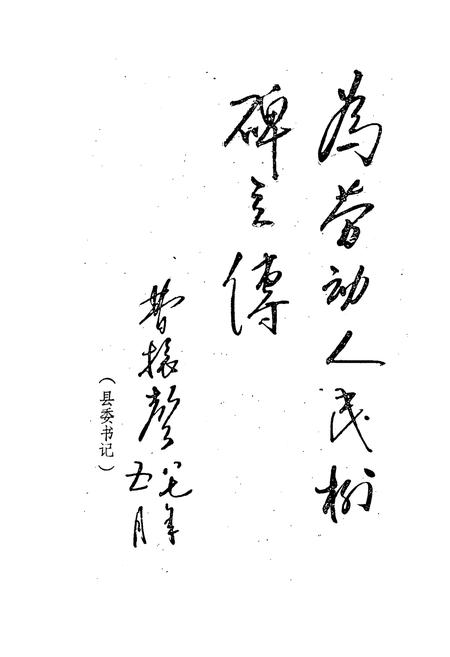 為劳动人民树
碑立傳
曹振声
八七年
五月
（县委书记）